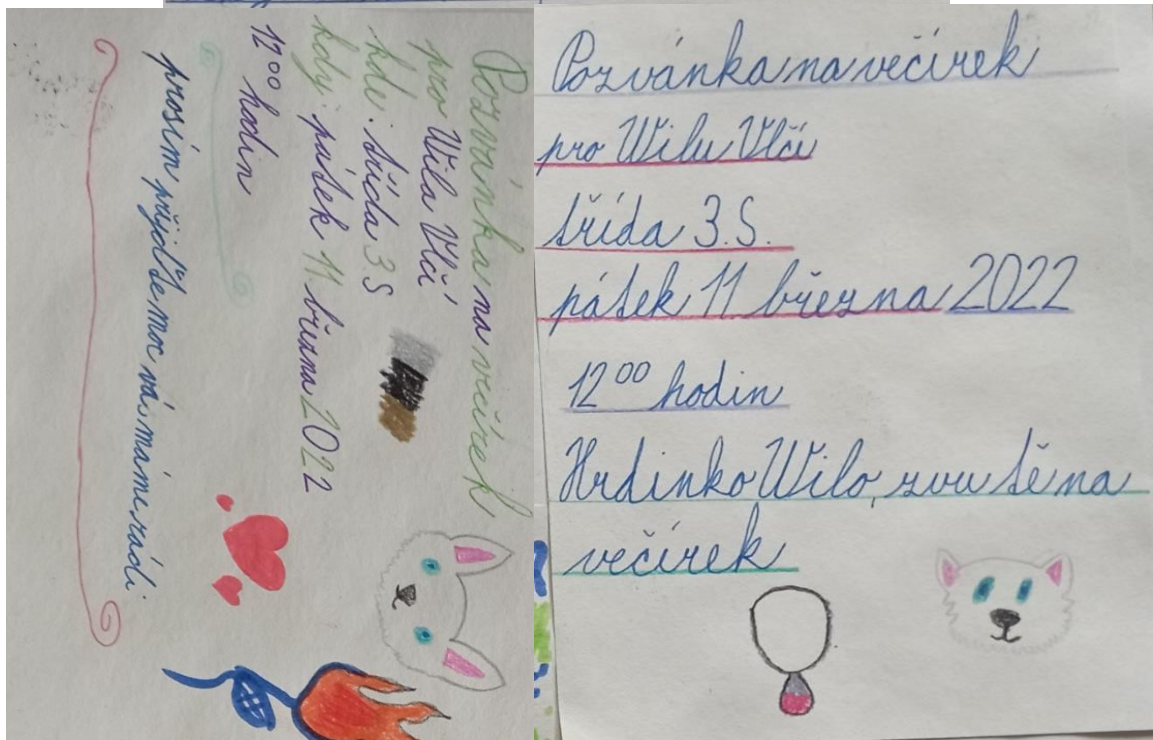 Pozvánka na večírek
pro Wila Vlčí
kde: třída 3 S
kdy: pátek 11 března 2022
12⁰⁰ hodin
prosím přijďte moc vás máme rádi
Pozvánka na večírek
pro Wilu Vlčí
třída 3. S.
pátek 11 března 2022
12⁰⁰ hodin
Hrdinko Wilo, zvu tě na
večírek